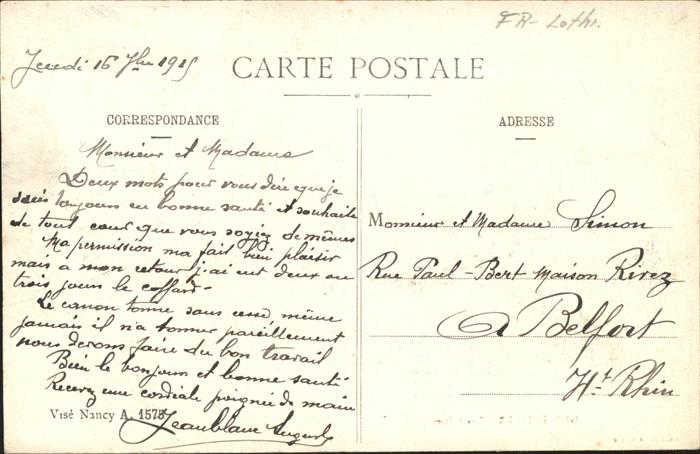 FR - Lothr.
Jeudi 16 7bre 1915
CARTE POSTALE
CORRESPONDANCE
Monsieur et Madame
Deux mots pour vous dire que je
suis toujours en bonne santé et souhaite
de tout cœur que vous soyiez de mêmes
Ma permission ma fait bien plaisir
mais a mon retour j'ai eut deux ou
trois jours le caffard.
Le canon tonne sans cesse, même
jamais il n'a tonner pareillement
nous devons faire du bon travail
Bien le bonjour et bonne santé
Recevez une cordiale poignée de main
Jeanblanc
Visé Nancy A. 1575
ADRESSE
Monsieur et Madame Simon
Rue Paul-Bert Maison Rivez
A Belfort
Ht Rhin